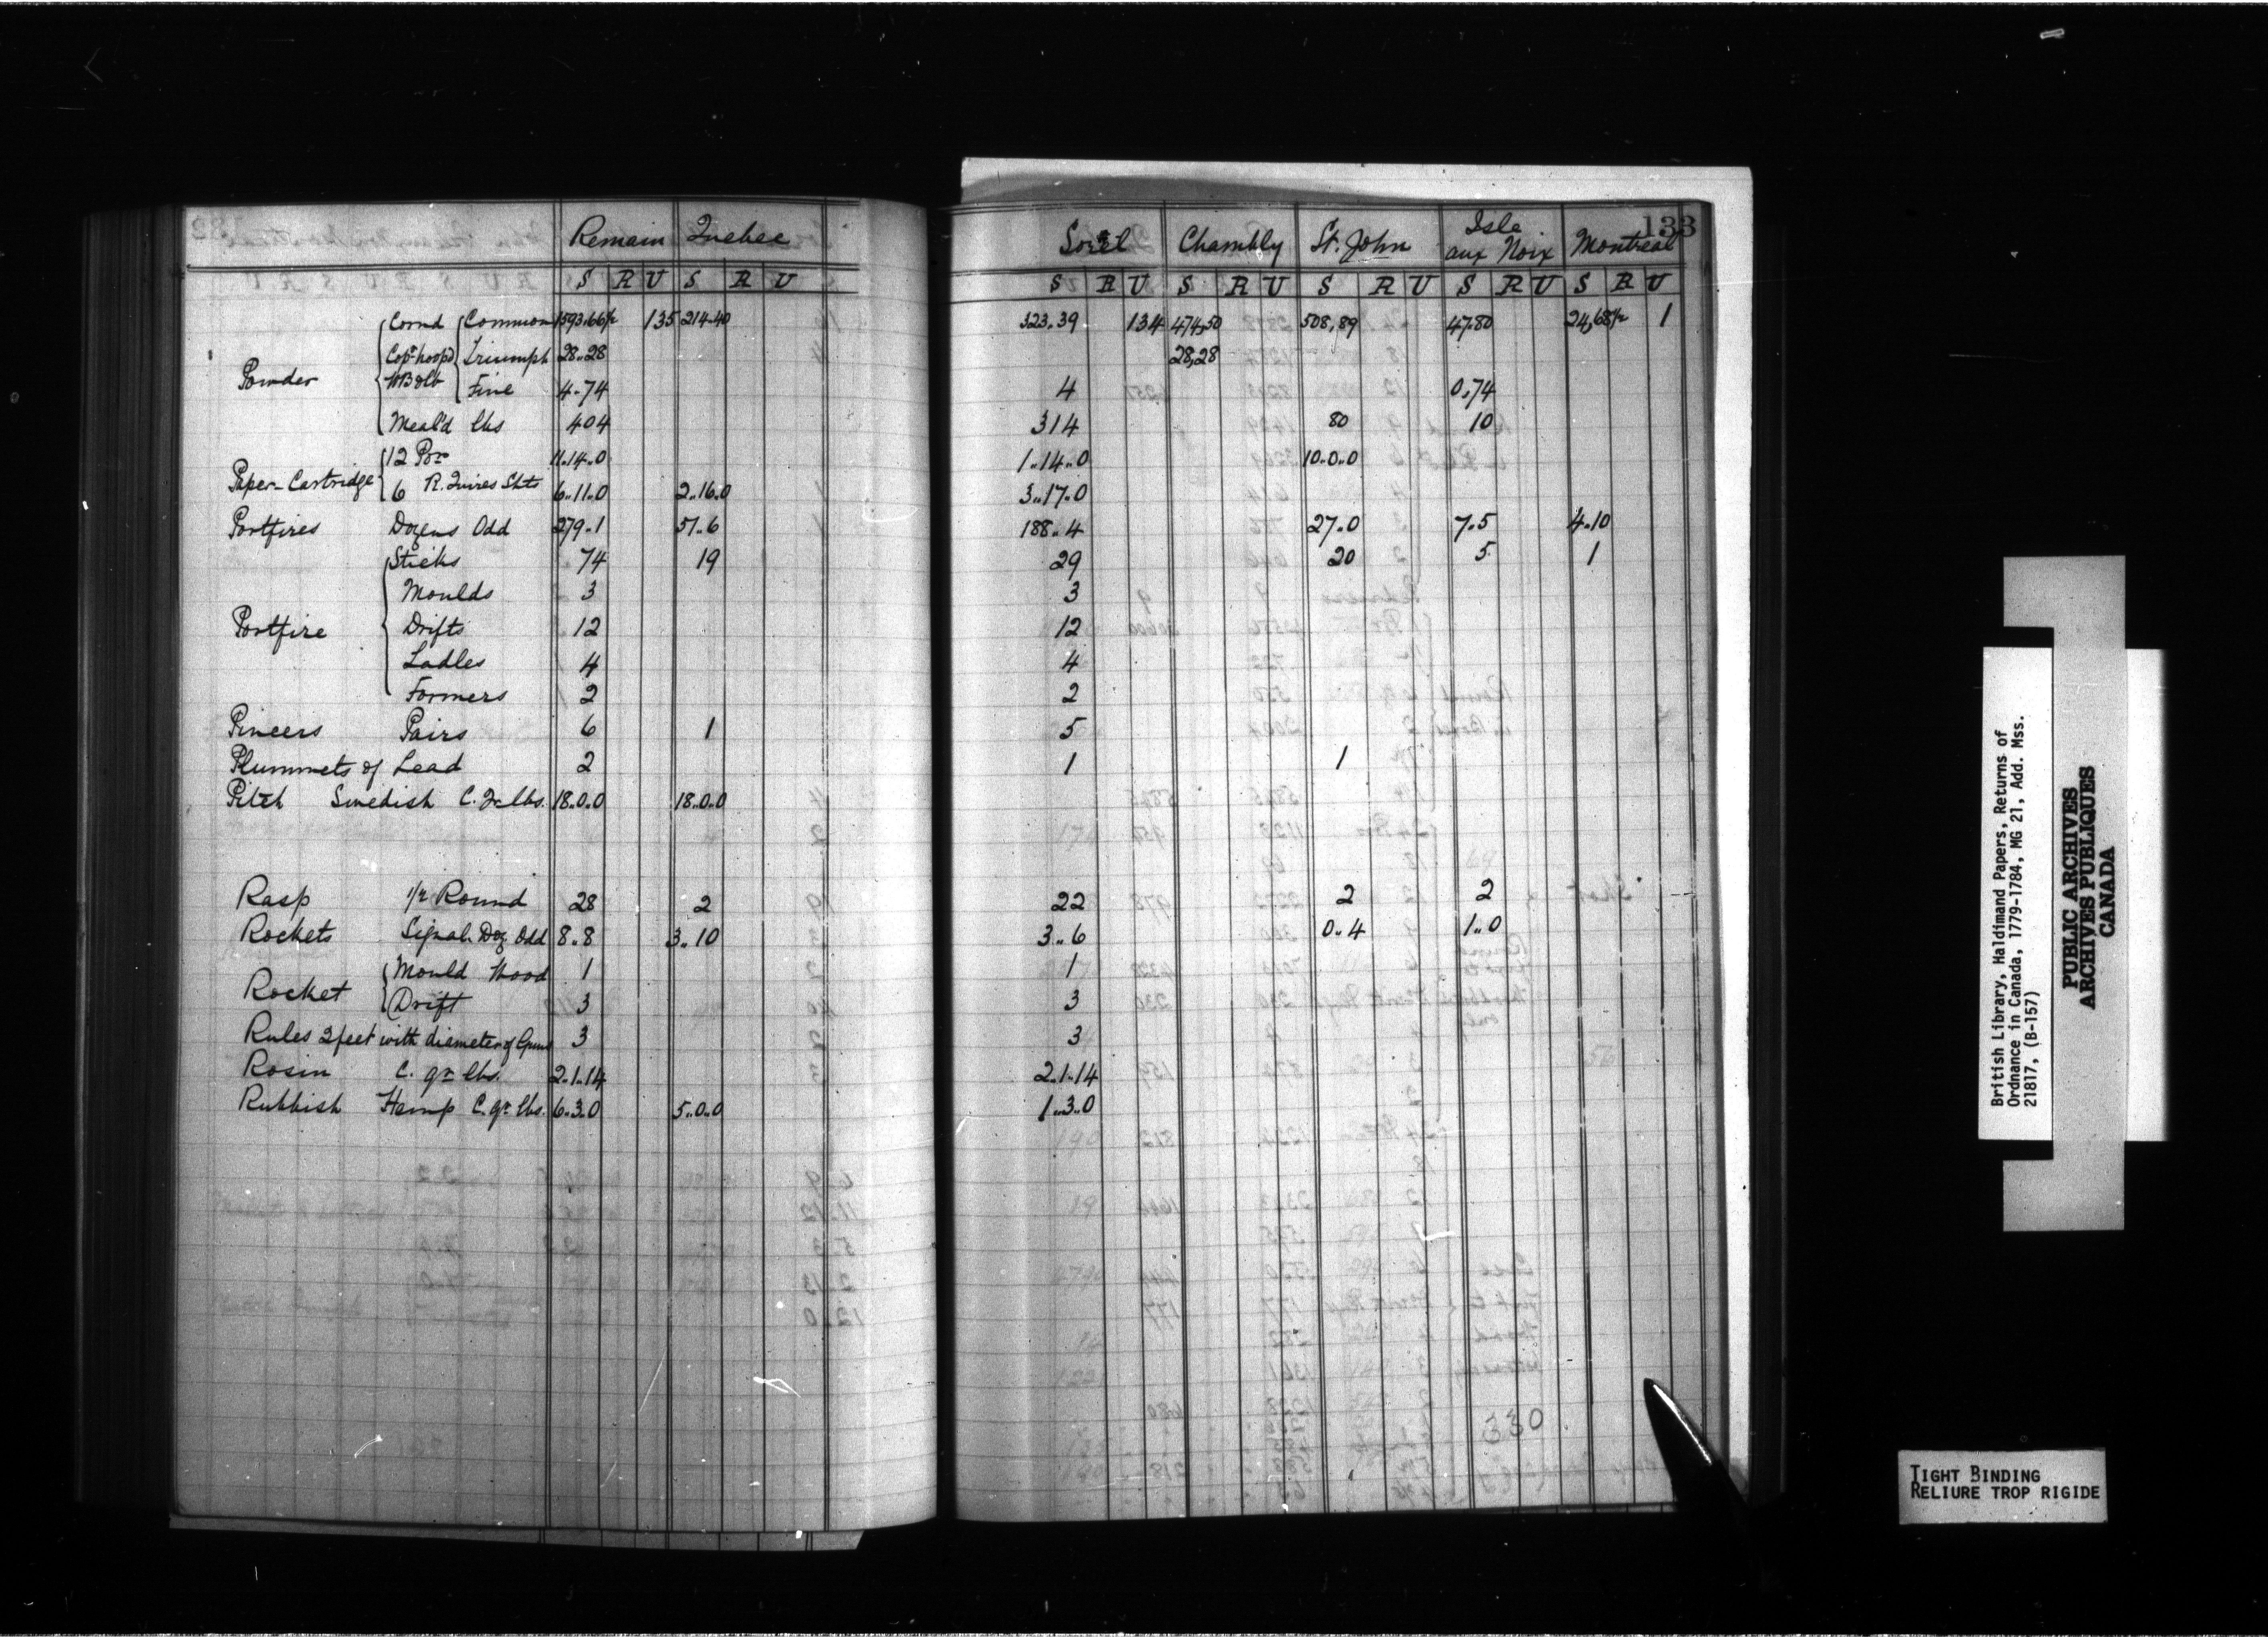 Remain Quebec Sorel Chambly St. John Isle aux Noix Montreal 133
S R U S R U S R U S R U S R U S R U S R U
Powder
Corn'd Common 1593.66½ 135 214.40 323.39 134 474,50 508,89 47.80 24,68½ 1
Cop. hoop'd Triumph 28..28 28,28
WB &lb Fine 4.74 4 0,74
Meal'd lbs 404 314 80 10
Paper-Cartridge
12 Por 11.14.0 1..14..0 10.0.0
6 R. Quires Shts 6..11.0 2..16.0 3..17.0
Portfires Dozens Odd 279.1 51.6 188..4 27.0 7.5 4.10
Portfire
Sticks 74 19 29 20 5 1
Moulds 3 3
Drifts 12 12
Ladles 4 4
Formers 2 2
Pincers Pairs 6 1 5
Plummets of Lead 2 1 1
Pitch Swedish C. Qr lbs. 18.0.0 18.0.0
Rasp ½ Round 28 2 22 2 2
Rockets Signal. Doz Odd 8..8 3..10 3..6 0..4 1..0
Rocket
Mould Wood 1 1
Drift 3 3
Rules 2 feet with diameter of Guns 3 3
Rosin C. qr lbs. 2.1.14 2.1.14
Rubbish Hemp C. qr lbs. 6.3.0 5..0.0 1..3..0
330
British Library, Haldimand Papers, Returns of
Ordnance in Canada, 1779-1784, MG 21, Add. Mss.
21817, (B-157)
PUBLIC ARCHIVES
ARCHIVES PUBLIQUES
CANADA
TIGHT BINDING
RELIURE TROP RIGIDE